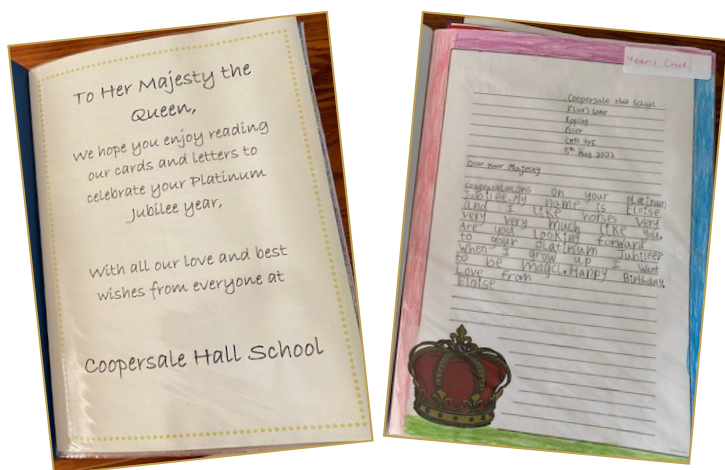 To Her Majesty the
Queen,
We hope you enjoy reading
our cards and letters to
celebrate your Platinum
Jubilee year,
With all our love and best
wishes from everyone at
Coopersale Hall School
Year 1
Coopersale Hall School
Flux's Lane
Epping
Essex
CM16 7PE
5th May 2022
Dear Your Majesty
Congratulations on your platinum
Jubilee. My name is Eloise
and I like horses very
very very much like you.
Are you looking forward
to your platinum Jubileer
When I grow up I want
to be magcl. Happy Birthday.
Love from
Eloise